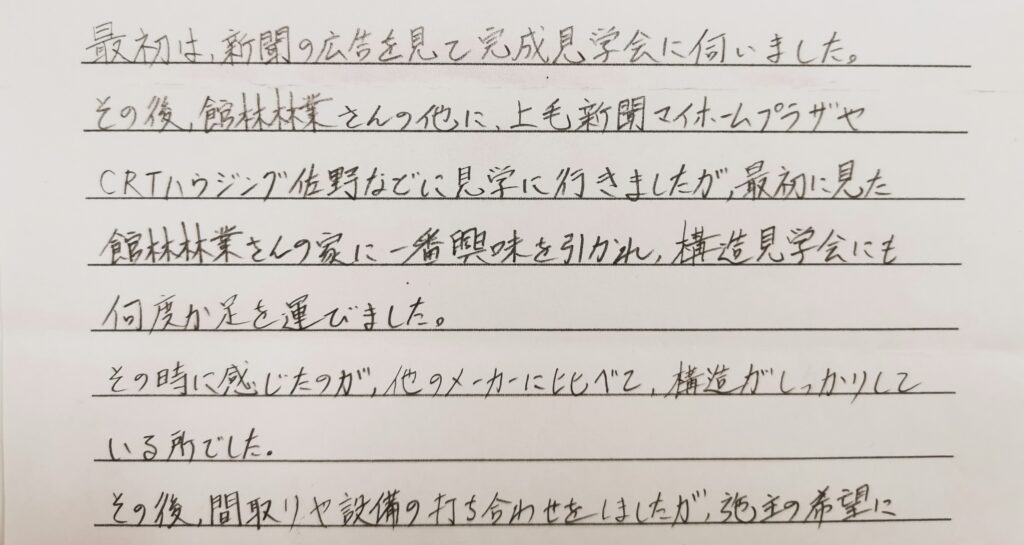 最初は、新聞の広告を見て完成見学会に伺いました。
その後、館林林業さんの他に、上毛新聞マイホームプラザや
CRTハウジング佐野などに見学に行きましたが、最初に見た
館林林業さんの家に一番興味を引かれ、構造見学会にも
何度か足を運びました。
その時に感じたのが、他のメーカーに比べて、構造がしっかりして
いる所でした。
その後、間取りや設備の打ち合わせをしましたが、施主の希望に